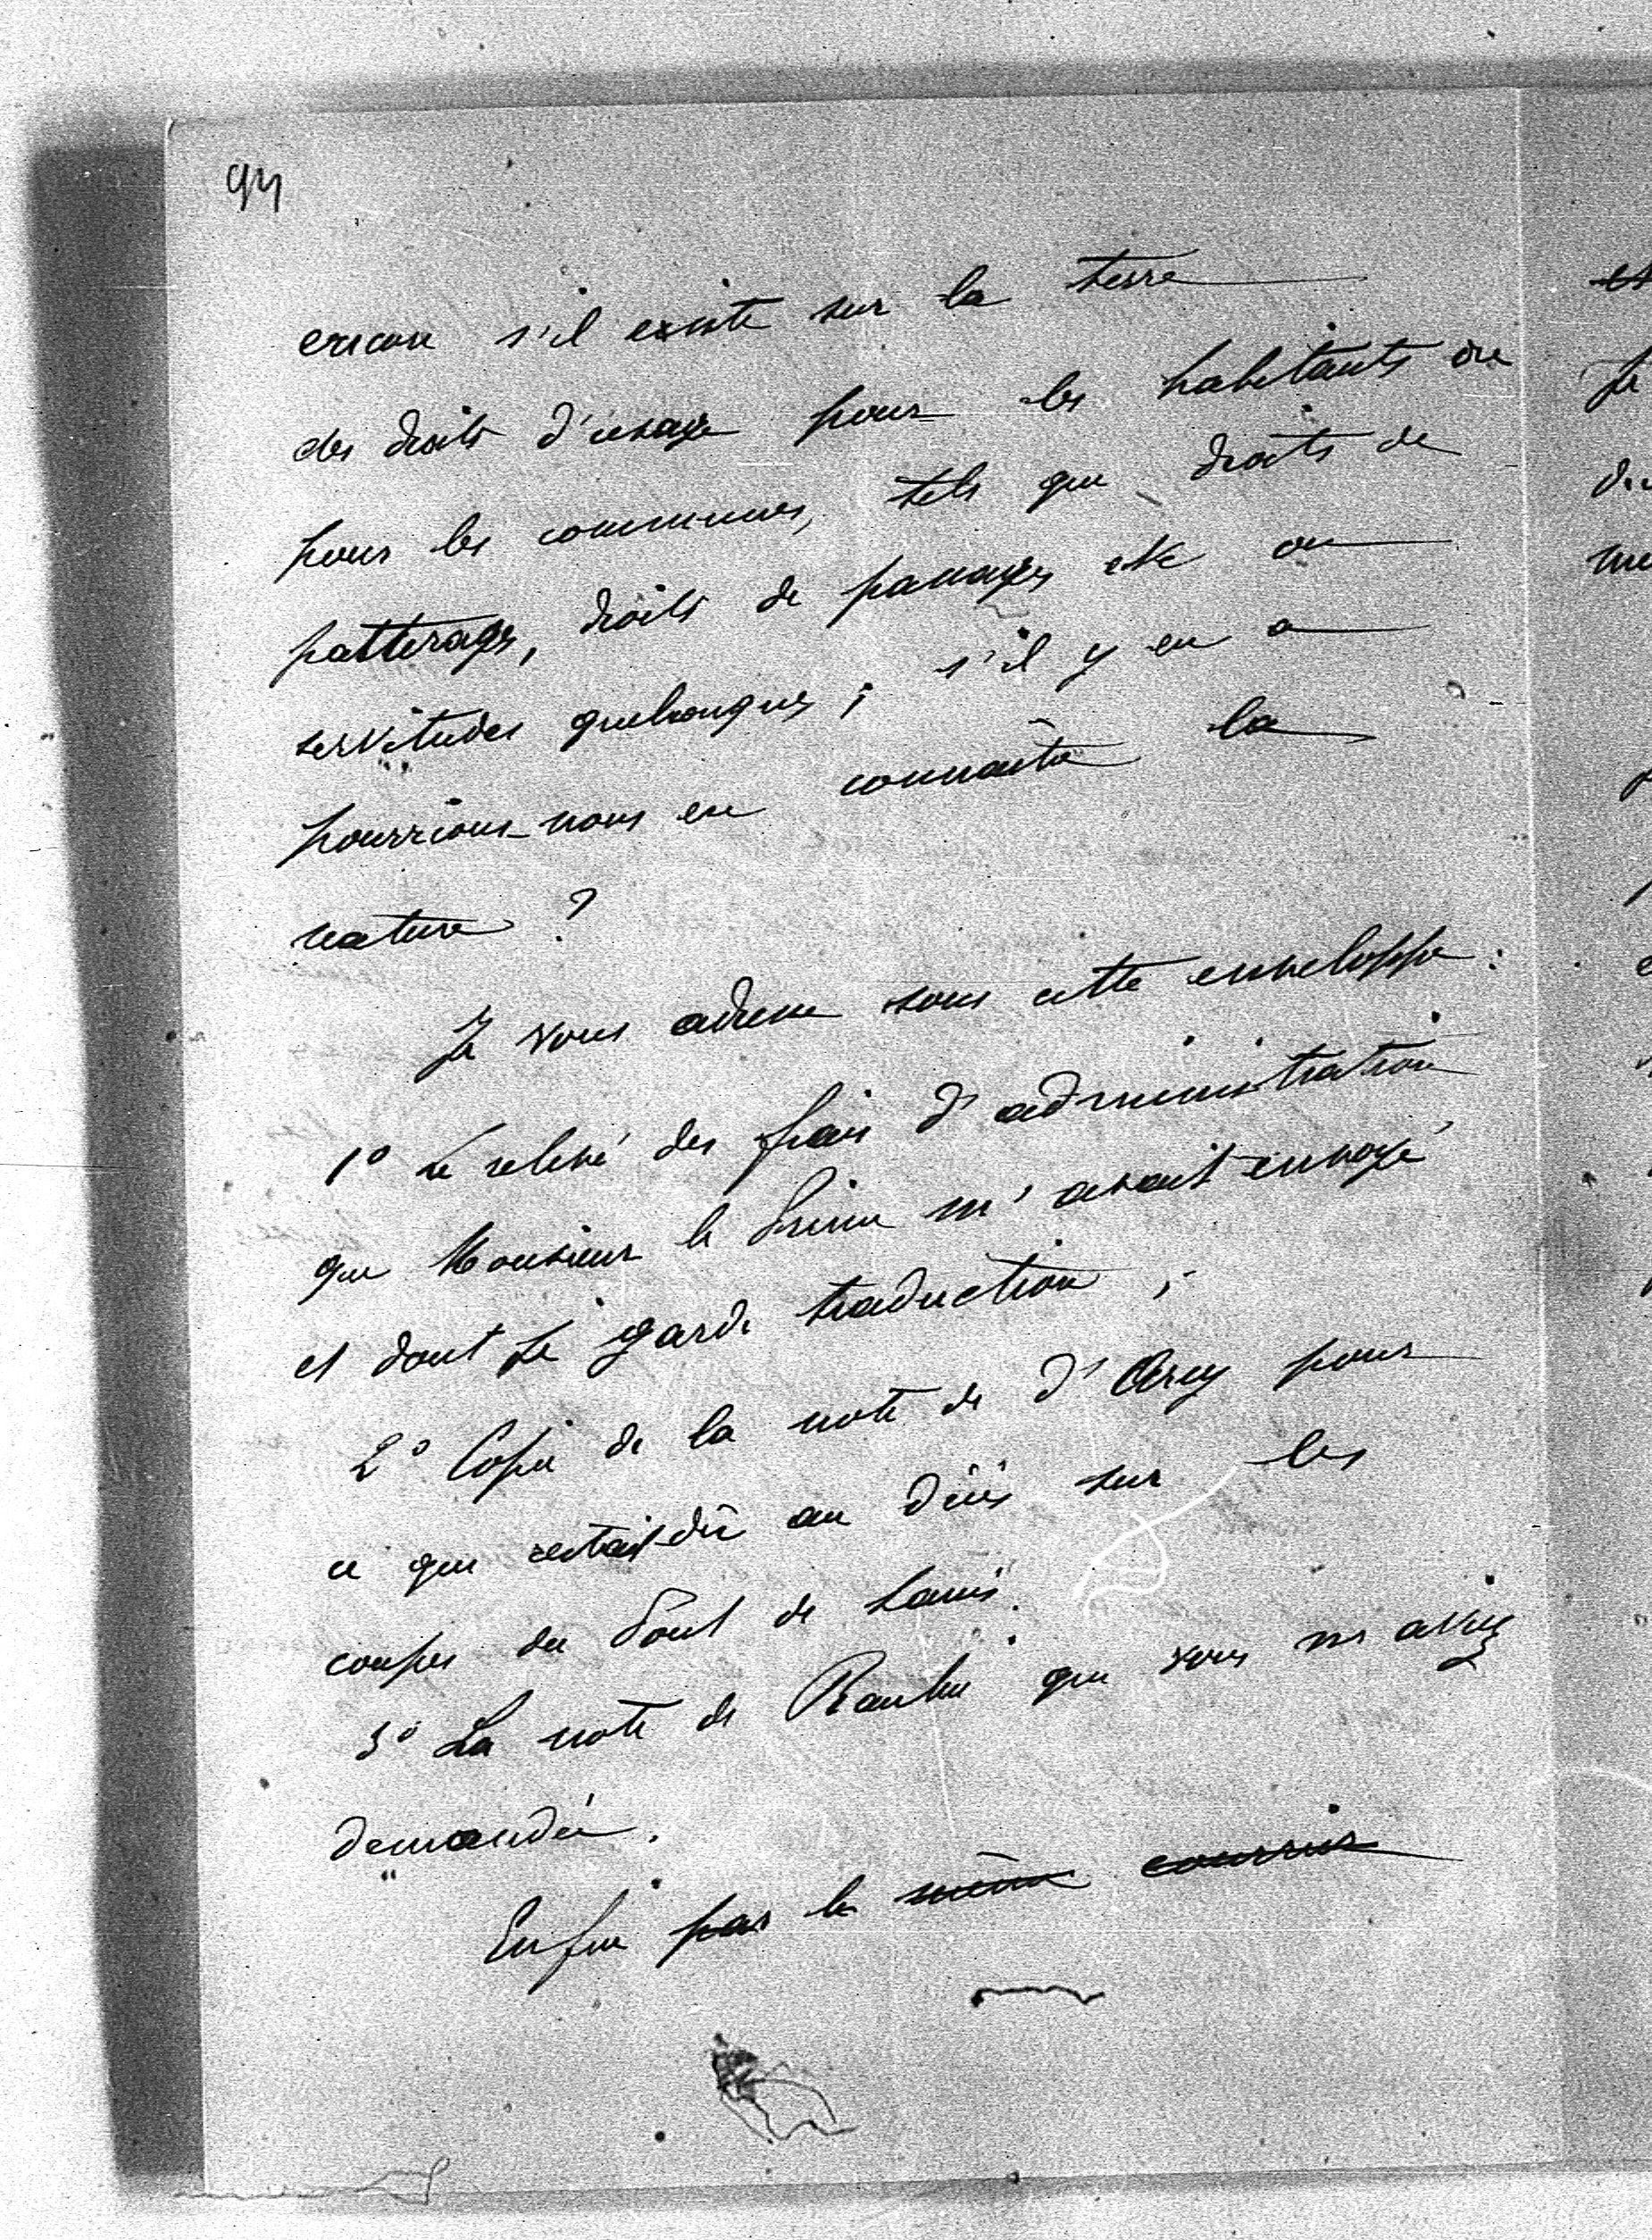 94
encore s'il existe sur la terre
des droits d'usage pour les habitants ou
pour les communes, tels que droits de
patturages, droits de passages etc ou
servitudes quelconques ; s'il y en a
pourrions-nous en connaître la
nature ?
Je vous adresse sous cette enveloppe :
1° Le relevé des frais d'administration
que Monsieur le Prince m'avait envoyé
et dont je garde traduction ;
2° Copie de la note de d'Arcy pour
ce qui restait dû au sur les
coupes du Pont de
3° La note de que vous m'aviez
demandée.
Enfin par le même courrier